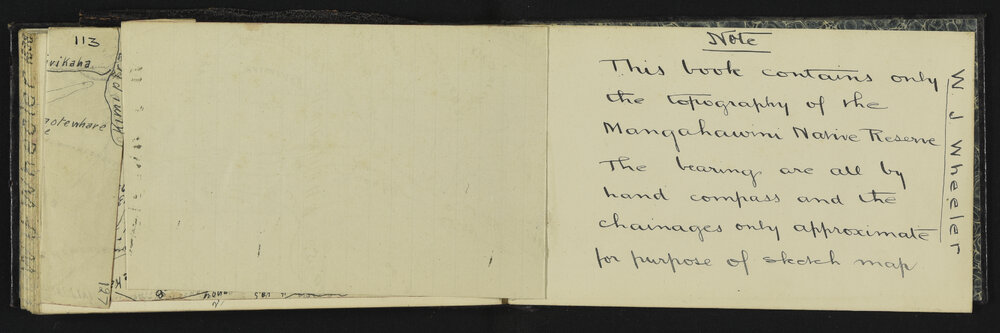 113
Note
This book contains only
the topography of the
Mangahawini Native Reserve
The bearing are all by
hand compass and the
chainages only approximate
for purpose of sketch map
W J Wheeler
127